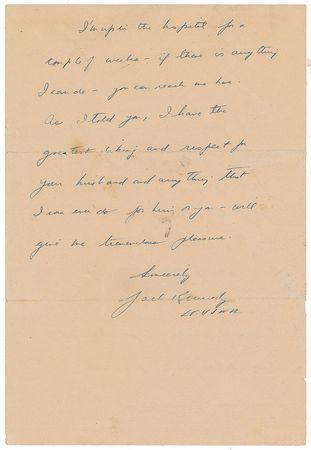 I'm up in the hospital for a
couple of weeks - if there is anything
I can do - you can reach me here.
As I told you, I have the
greatest liking and respect for
your husband and anything that
I can ever do for him or you - will
give me tremendous pleasure.
Sincerely
Jack Kennedy
Lt. USNR